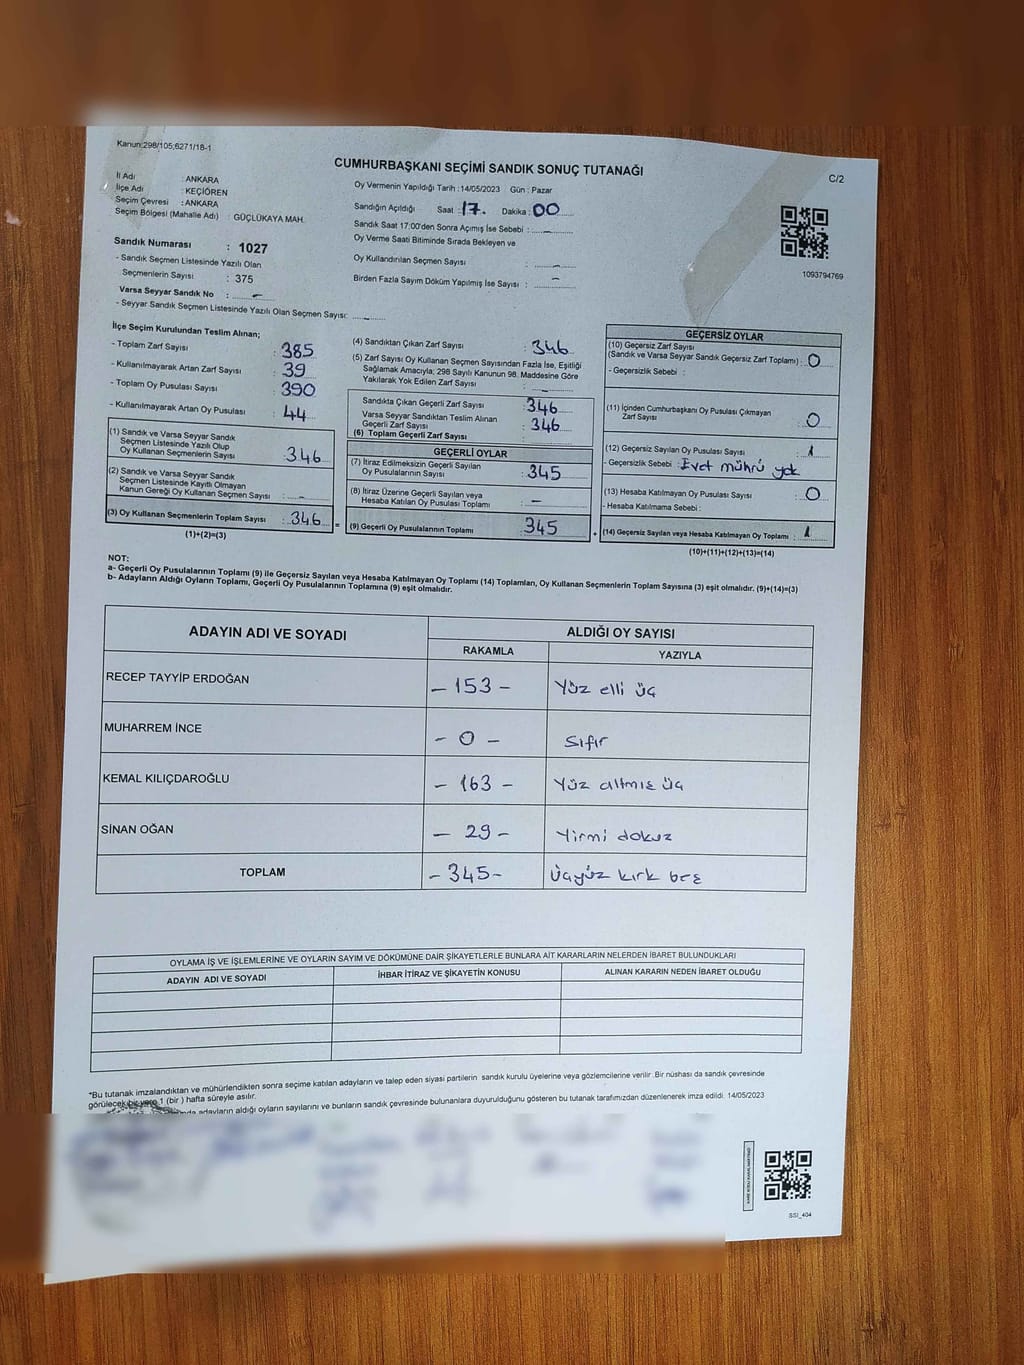 Kanun:298/105;6271/18-1
CUMHURBAŞKANI SEÇİMİ SANDIK SONUÇ TUTANAĞI
C/2
İl Adı : ANKARA
İlçe Adı : KEÇİÖREN
Seçim Çevresi : ANKARA
Seçim Bölgesi (Mahalle Adı) : GÜÇLÜKAYA MAH.
Sandık Numarası : 1027
- Sandık Seçmen Listesinde Yazılı Olan
Seçmenlerin Sayısı : 375
Varsa Seyyar Sandık No : –
- Seyyar Sandık Seçmen Listesinde Yazılı Olan Seçmen Sayısı: –
Oy Vermenin Yapıldığı Tarih :14/05/2023 Gün : Pazar
Sandığın Açıldığı Saat : 17. Dakika : 00
Sandık Saat 17:00'den Sonra Açımış İse Sebebi : –
Oy Verme Saati Bitiminde Sırada Bekleyen ve
Oy Kullandırılan Seçmen Sayısı : –
Birden Fazla Sayım Döküm Yapılmış İse Sayısı : –
1093794769
İlçe Seçim Kurulundan Teslim Alınan;
- Toplam Zarf Sayısı : 385
- Kullanılmayarak Artan Zarf Sayısı : 39
- Toplam Oy Pusulası Sayısı : 390
- Kullanılmayarak Artan Oy Pusulası : 44
(1) Sandık ve Varsa Seyyar Sandık
Seçmen Listesinde Yazılı Olup
Oy Kullanan Seçmenlerin Sayısı : 346
(2) Sandık ve Varsa Seyyar Sandık
Seçmen Listesinde Kayıtlı Olmayan
Kanun Gereği Oy Kullanan Seçmen Sayısı : –
(3) Oy Kullanan Seçmenlerin Toplam Sayısı : 346 =
(1)+(2)=(3)
(4) Sandıktan Çıkan Zarf Sayısı : 346
(5) Zarf Sayısı Oy Kullanan Seçmen Sayısından Fazla İse, Eşitliği
Sağlamak Amacıyla; 298 Sayılı Kanunun 98. Maddesine Göre
Yakılarak Yok Edilen Zarf Sayısı : –
Sandıkta Çıkan Geçerli Zarf Sayısı : 346
Varsa Seyyar Sandıktan Teslim Alınan
Geçerli Zarf Sayısı : 346
(6) Toplam Geçerli Zarf Sayısı :
GEÇERLİ OYLAR
(7) İtiraz Edilmeksizin Geçerli Sayılan
Oy Pusulalarının Sayısı : 345
(8) İtiraz Üzerine Geçerli Sayılan veya
Hesaba Katılan Oy Pusulası Toplamı : –
(9) Geçerli Oy Pusulalarının Toplamı : 345 +
GEÇERSİZ OYLAR
(10) Geçersiz Zarf Sayısı
(Sandık ve Varsa Seyyar Sandık Geçersiz Zarf Toplamı) : 0
- Geçersizlik Sebebi :
(11) İçinden Cumhurbaşkanı Oy Pusulası Çıkmayan
Zarf Sayısı : 0
(12) Geçersiz Sayılan Oy Pusulası Sayısı : 1
- Geçersizlik Sebebi : Evet mührü yok
(13) Hesaba Katılmayan Oy Pusulası Sayısı : 0
- Hesaba Katılmama Sebebi :
(14) Geçersiz Sayılan veya Hesaba Katılmayan Oy Toplamı : 1
(10)+(11)+(12)+(13)=(14)
NOT:
a- Geçerli Oy Pusulalarının Toplamı (9) ile Geçersiz Sayılan veya Hesaba Katılmayan Oy Toplamı (14) Toplamları, Oy Kullanan Seçmenlerin Toplam Sayısına (3) eşit olmalıdır. (9)+(14)=(3)
b- Adayların Aldığı Oyların Toplamı, Geçerli Oy Pusulalarının Toplamına (9) eşit olmalıdır.
ADAYIN ADI VE SOYADI ALDIĞI OY SAYISI
RAKAMLA YAZIYLA
RECEP TAYYİP ERDOĞAN – 153 – Yüz elli üç
MUHARREM İNCE – 0 – sıfır
KEMAL KILIÇDAROĞLU – 163 – Yüz altmış üç
SİNAN OĞAN – 29 – Yirmi dokuz
TOPLAM – 345 – Üçyüz kırk beş
OYLAMA İŞ VE İŞLEMLERİNE VE OYLARIN SAYIM VE DÖKÜMÜNE DAİR ŞİKAYETLERLE BUNLARA AİT KARARLARIN NELERDEN İBARET BULUNDUKLARI
ADAYIN ADI VE SOYADI İHBAR İTİRAZ VE ŞİKAYETİN KONUSU ALINAN KARARIN NEDEN İBARET OLDUĞU
*Bu tutanak imzalandıktan ve mühürlendikten sonra seçime katılan adayların ve talep eden siyasi partilerin sandık kurulu üyelerine veya gözlemcilerine verilir. Bir nüshası da sandık çevresinde
görülecek bir yere 1 (bir ) hafta süreyle asılır.
adayların aldığı oyların sayılarını ve bunların sandık çevresinde bulunanlara duyurulduğunu gösteren bu tutanak tarafımızdan düzenlenerek imza edildi. 14/05/2023
SSI_404